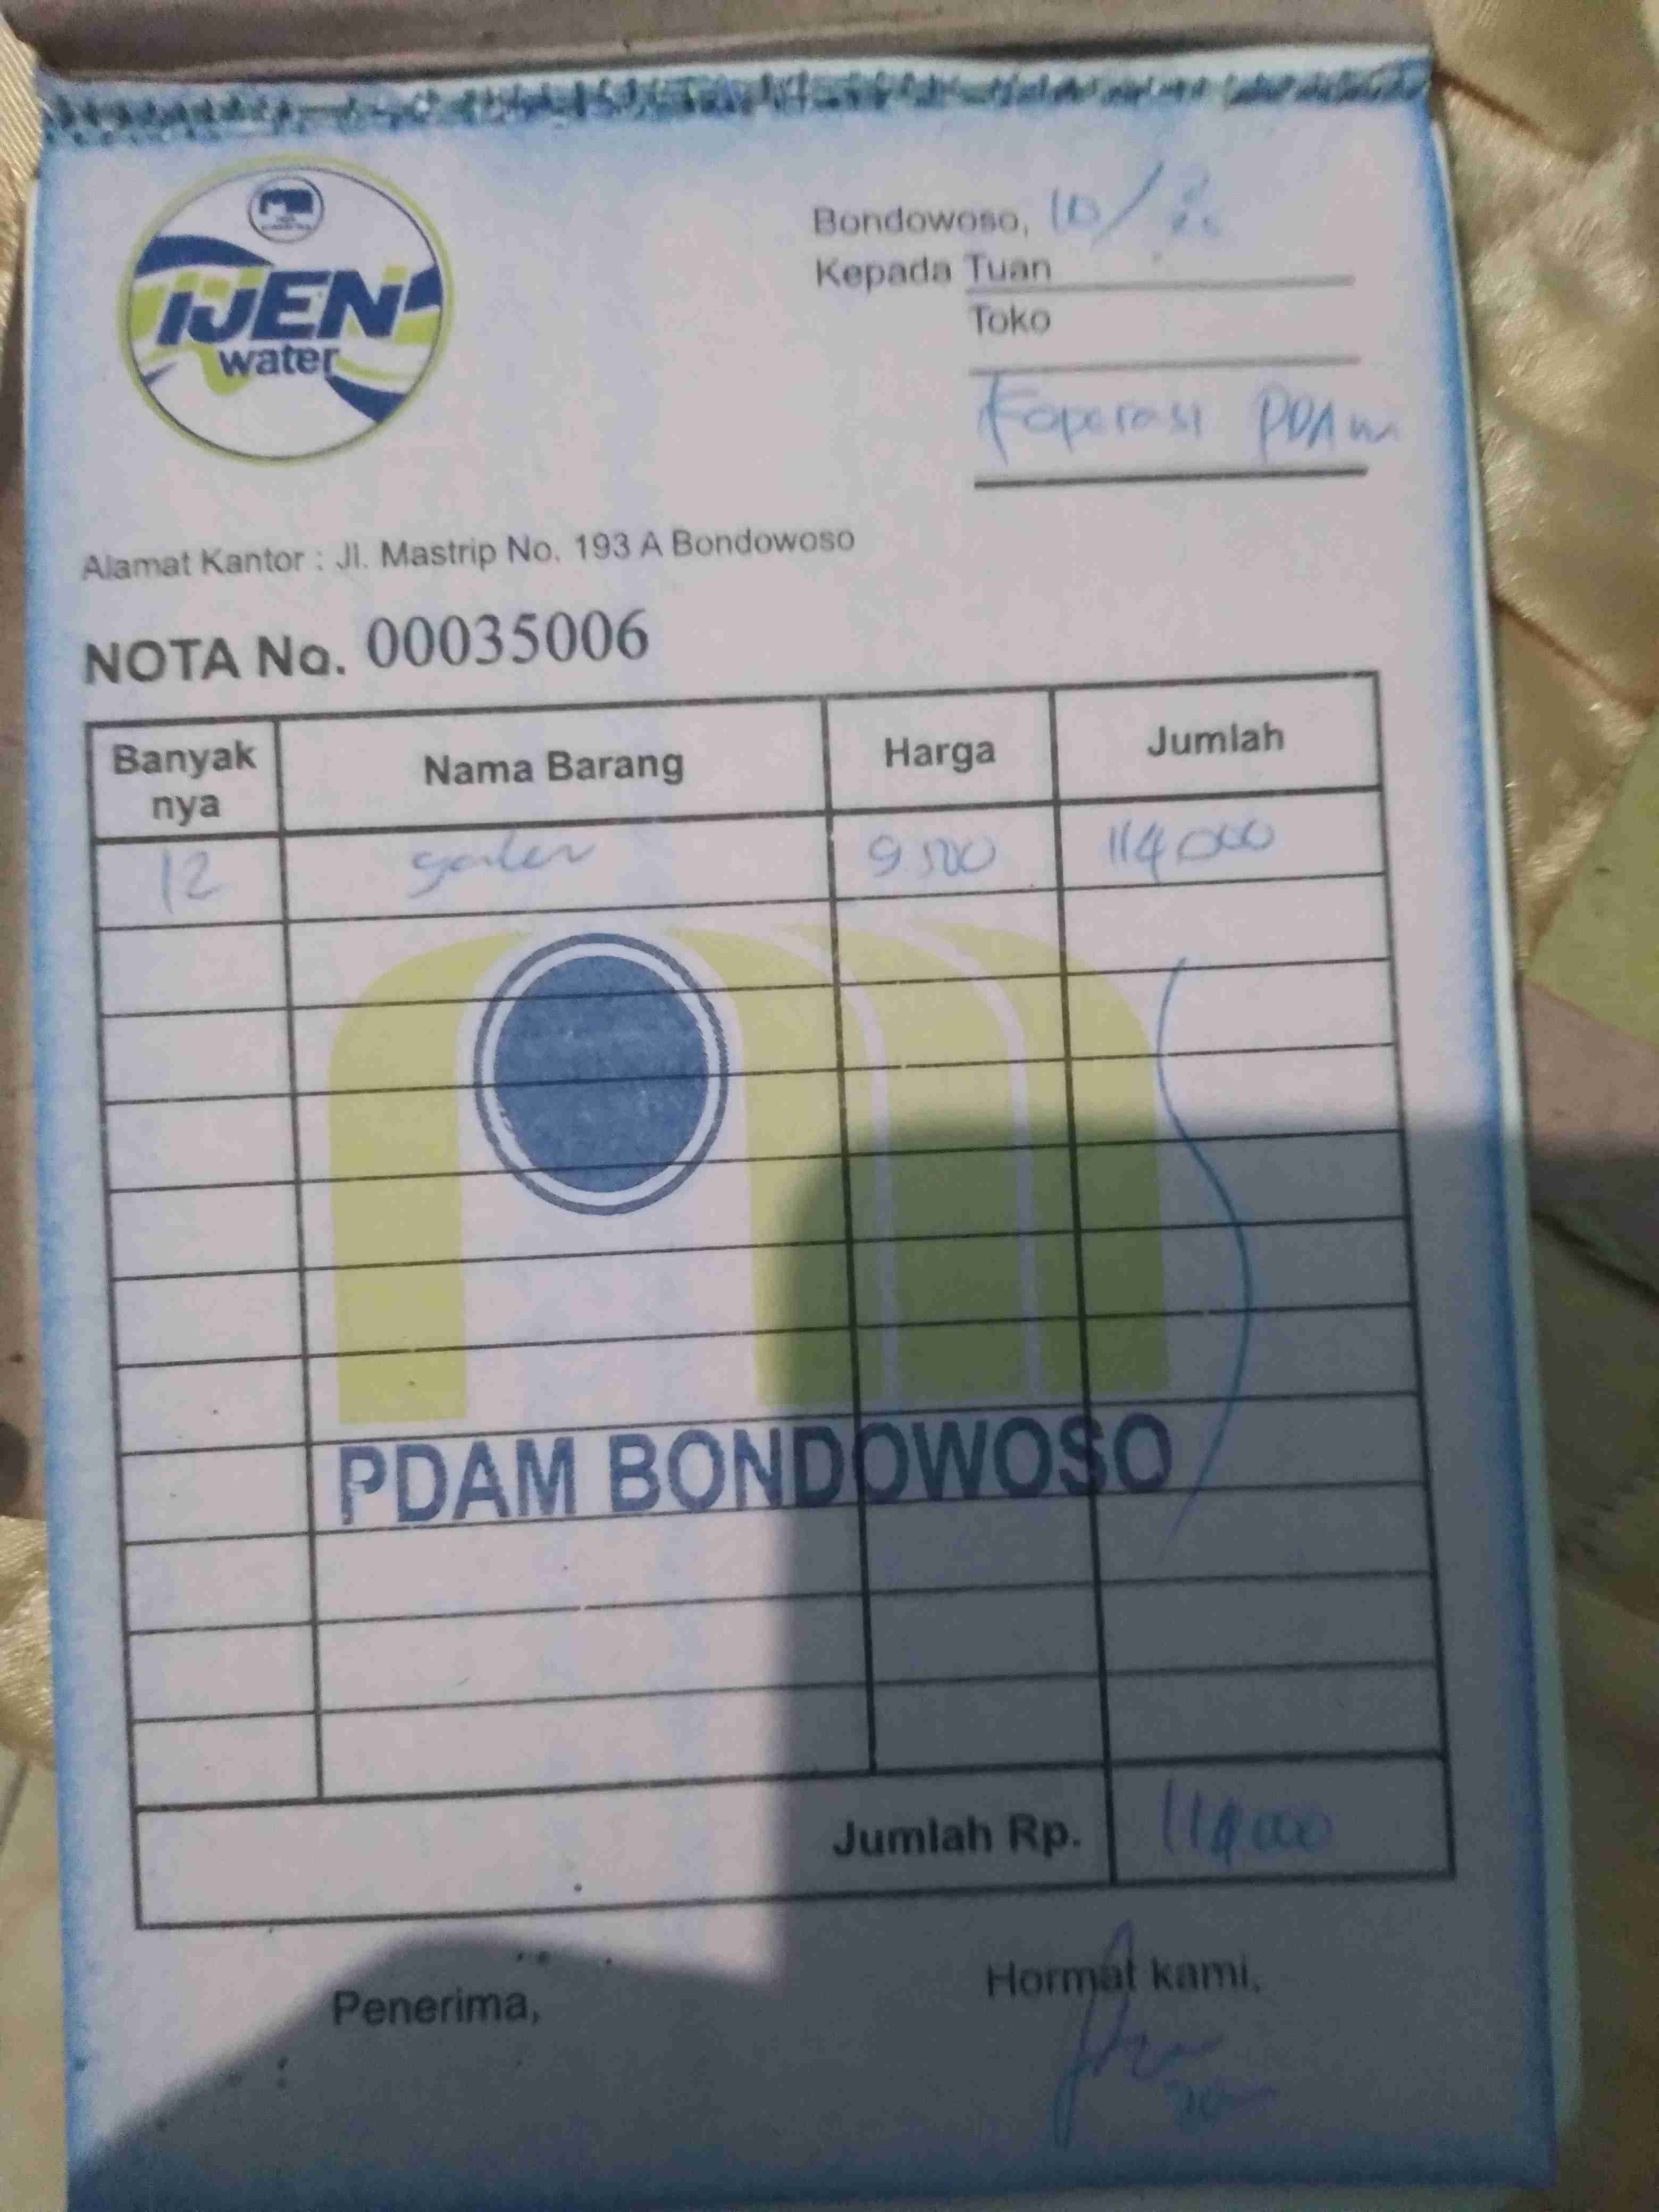 IJEN
water
Bondowoso, 10/
Kepada Tuan
Toko
Koperasi PDAM
Alamat Kantor : Jl. Mastrip No. 193 A Bondowoso
NOTA No. 00035006
Banyak nya Nama Barang Harga Jumlah
12 galon 9.500 114.000
PDAM BONDOWOSO
Jumlah Rp. 114.000
Penerima,
Hormat kami,